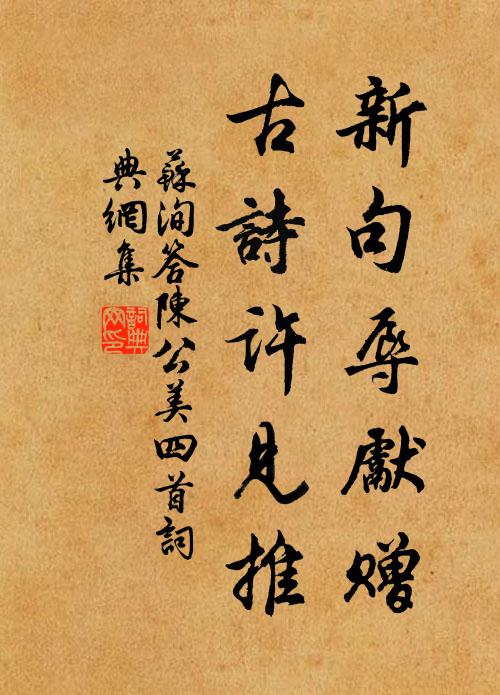 新句辱獻贈
古詩許見推
蘇洵答陳公美四首詞
典網集
詞典
网印